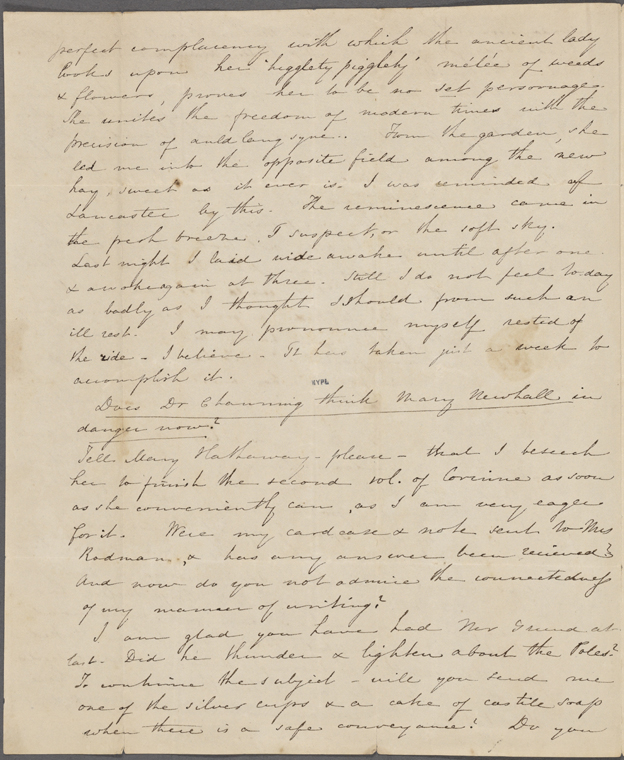 perfect complacency with which the ancient lady
looks upon her 'higglety pigglety' mélée of weeds
& flowers, proves her to be no set personage.
She unites the freedom of modern times with the
precision of auld lang syne. From the garden, she
led me into the opposite field among the new
hay, sweet as it ever is. I was reminded of
Lancaster by this. The reminiscence came in
the fresh breeze, I suspect, or the soft sky.
Last night I laid wide awake until after one
& awoke again at three. Still I do not feel today
as badly as I thought I should from such an
ill rest. I may pronounce myself rested of
the ride - I believe - It has taken just a week to
accomplish it.
NYPL
Does Dr Channing think Mary Newhall in
danger now?
Tell Mary Hathaway - please - that I beseech
her to finish the second vol. of Corinne as soon
as she conveniently can, as I am very eager
for it. Were my card case & note sent to Mrs
Rodman, & has any answer been recieved?
And now do you not admire the connectedness
of my manner of writing?
I am glad you have had Ner Freund at
last. Did he thunder & lighten about the Poles?
To continue the subject - will you send me
one of the silver cups & a cake of castile soap
when there is a safe conveyance? Do you